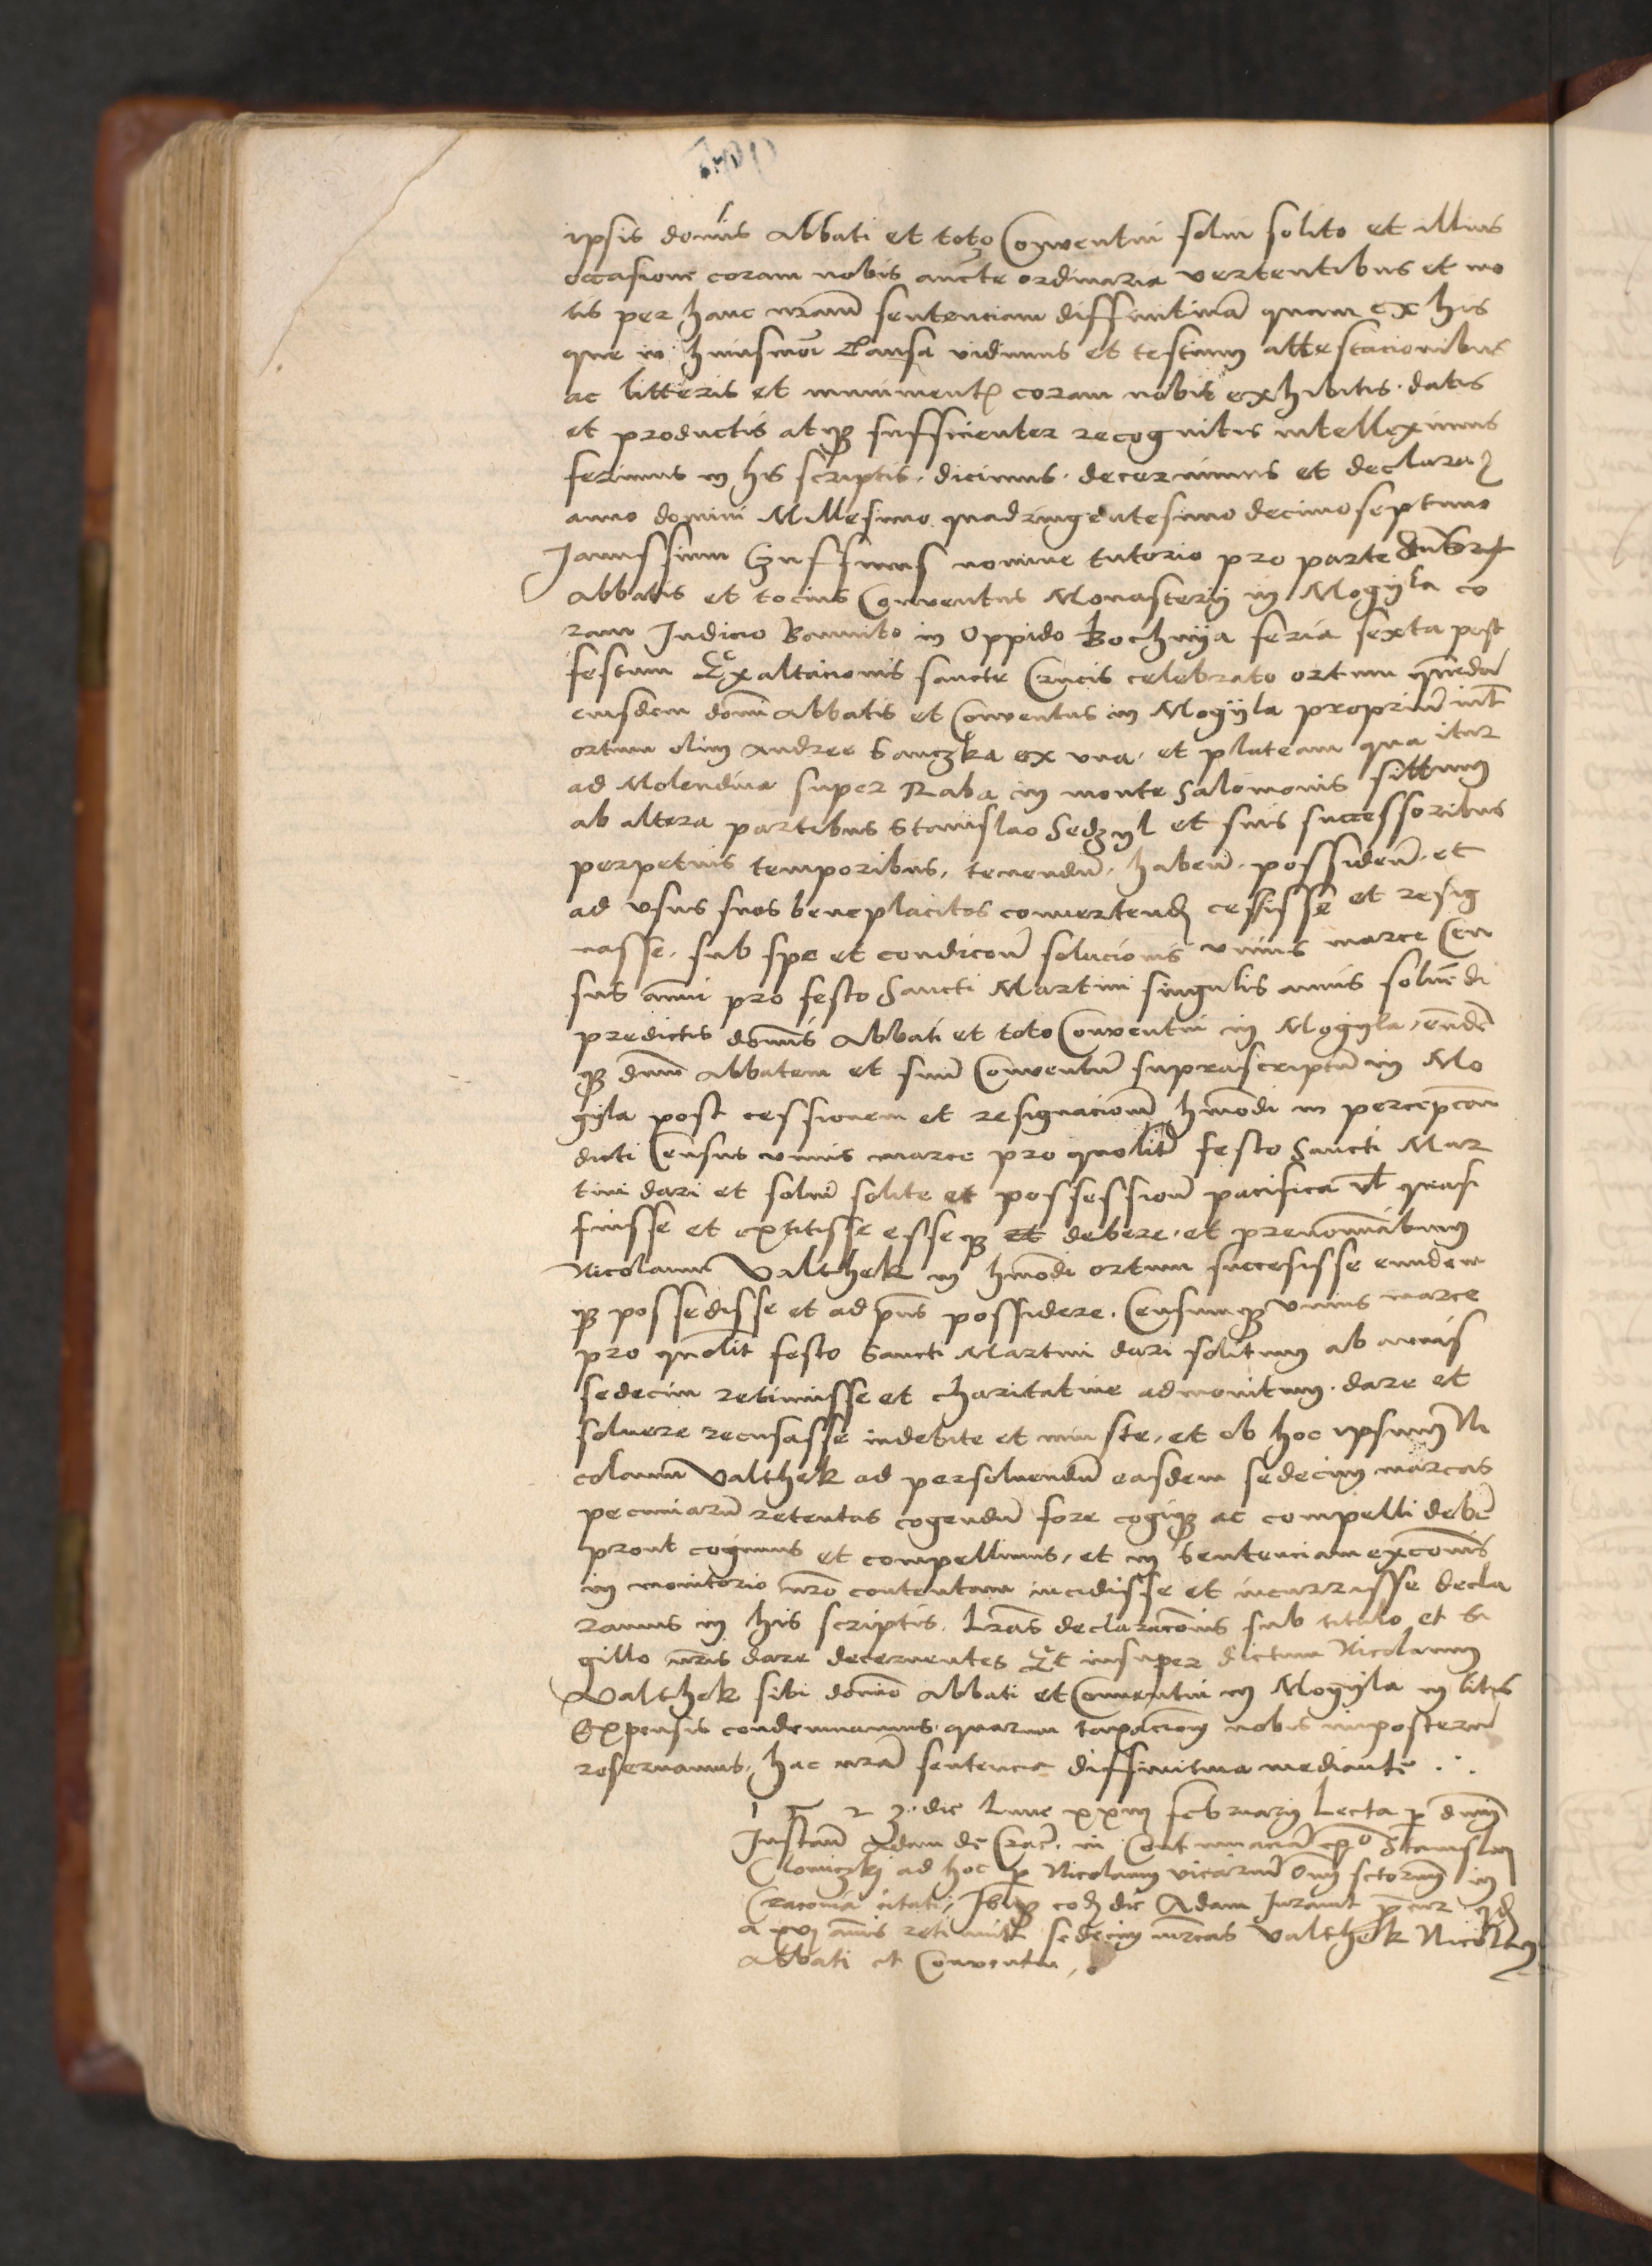 ipsis domīs Abbati et toto Conventui solui solito et illius
occasione coram nobis aucte ordinaria vertentibus et mo
tis per hanc nrām sentenciam diffinitiuā quam ex his
que in huiusmōi Causa vidimus et testium attestacionibus
ac litteris et muniment coram nobis exhibitis. datis
et productis atqȝ sufficienter recognitis intelleximus
ferimus in his scriptis. dicimus. decernimus et declara
anno domini Millesimo quadringentesimo decimoseptimo
Janussium nomine tutorio pro parte
Abbatis et tocius Conventus Monasterij in Mogyla co
ram Judicio Bannito in Oppido Bochnÿa feria sexta post
festum Exaltacionis sancte Crucis celebrato ortum quendā
eiusdem domī Abbatis et Conventus in Mogÿla propriū int
ortum olim Andree Sanczka ex una. et plateam qua itur
ad Molendina super Raba in monte Salomonis sittum
ab altera partibus Stanislao Sedzyl et suis successoribus
perpetuis temporibus, tenendū. habenđ. possidenđ. et
ad vsus suos beneplacitos convertenđ cessisse et resig
nasse. sub spe et condicōe solucionis unius marce Cen
sus annui pro festo Sancti Martini singulis annis soluēdi
predictis domīs Abbati et toto Conventui in Mogyla, eundē
qȝ dnm̄ Abbatem et suū Conventū suprascriptū in Mo
gyla post cessionem et resignacionē hmōdi in percepcōe
dicti Census unius marce pro quolit festo Sancti Mar
tini dari et solui solite et possessione pacifica vl quasi
fuisse et extitisse esseqȝ et debere. et prenominatum
Nicolaum Valthek in hmōdi ortum successisse eundem
qȝ possedisse et ad pn̄s possidere. Censumqȝ vnius marce
pro quolit festo Sancti Martini dari solitum ab annis
sedecim retinuisse et charitatiue admonitum. dare et
soluere recusasse indebite et iniuste, et ob hoc ipsum Ni
colaum Valthek ad persoluendū easdem sedecim marcas
pecuniarū retentas cogendū fore cogiqȝ ac compelli debē
prout cogimus et compellimus, et in Sentenciam excōīs
in monitorio nrō contentam incidisse et incurrisse decla
ramus in his scriptis. Lrās declaracōnis sub titulo et Si
gillo nrīs dare decernentes Et insuper dictum Nicolaum
Valthek sibi domīo Abbati et Conventui in Mogÿla in litis
Expensis condemnamus. quarum taxacionē nobis imposterū
reseruamus. hac nrā sentencia diffinitiua mediante . .
1 5 2 3. die Lune xxiij februarij Lecta p dnm̄
ad hoc p Nicolaum vicariū Om̄ sctorum in
Cracouia citati, Ibiqȝ eođ die Adam Jurauit
a xvj annis retinuit sedecim mrcas Valthek Nicolaus
Abbati et Conventui.